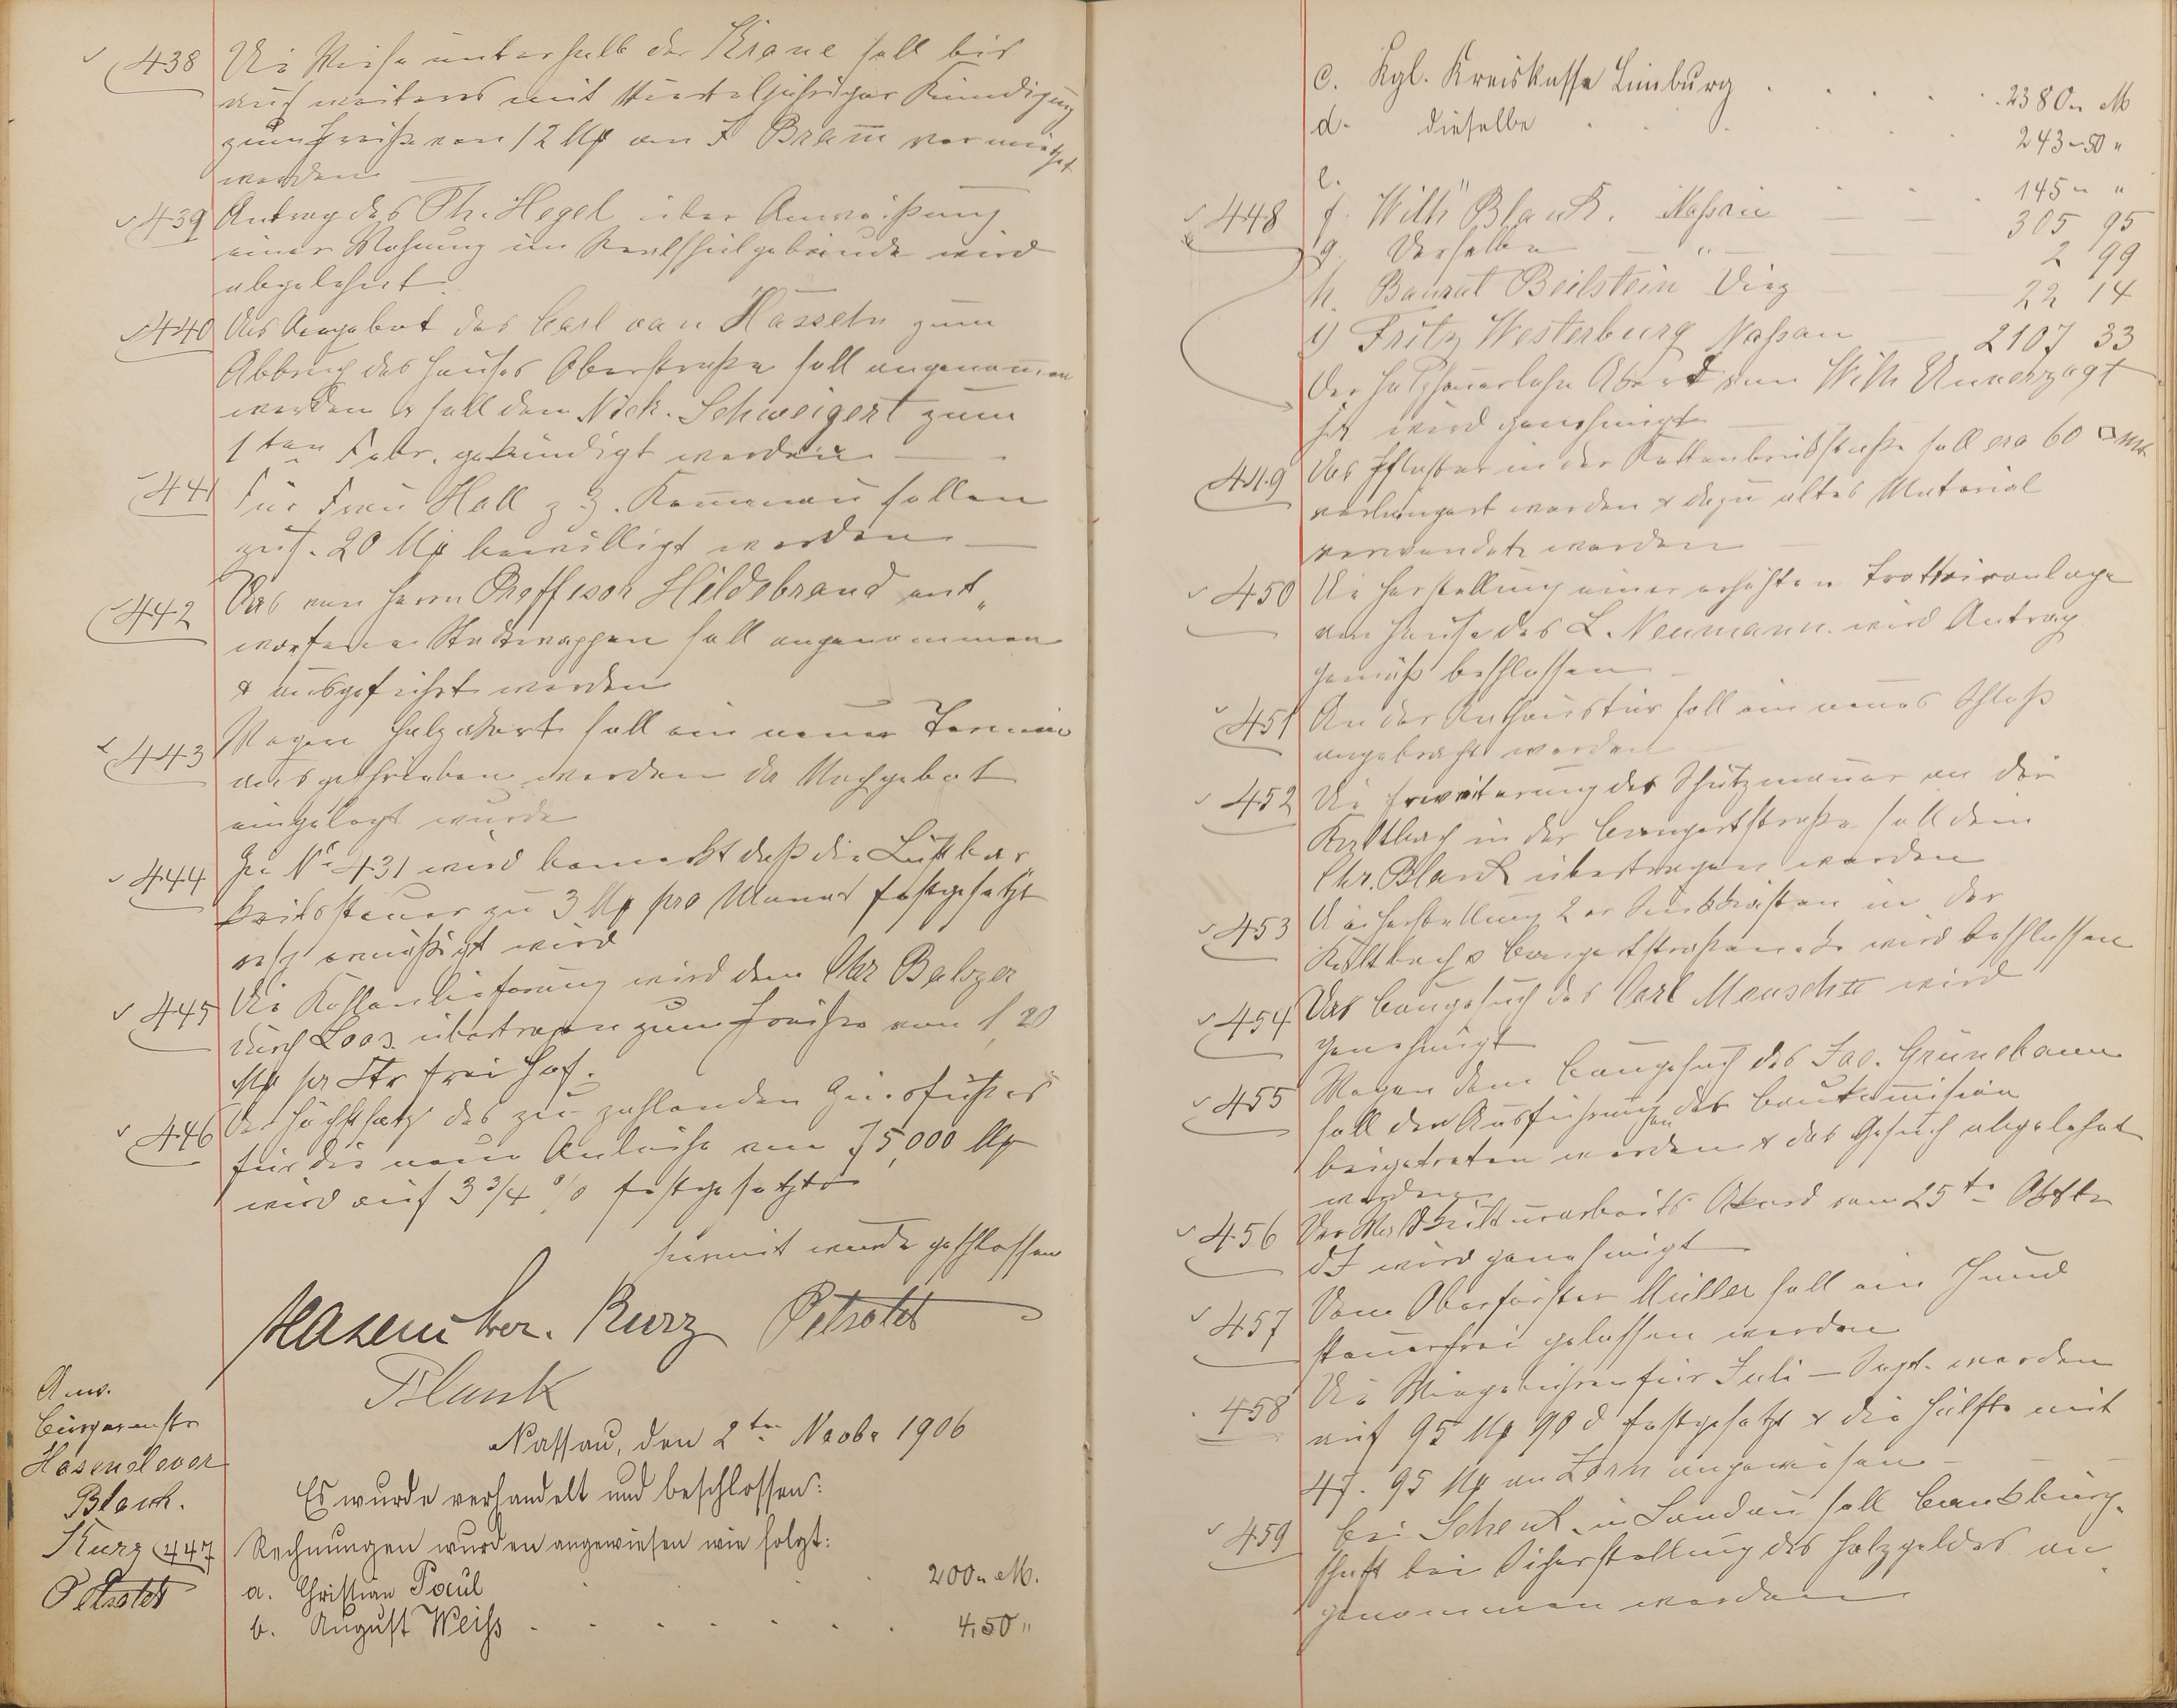 438 Die Wiese unterhalb der Krone soll bis
auf weiteres mit Vierteljähriger Kündigung
zum Preiße von 12 Mk an F Bram̅ vermiethet
werden
439 Antrag des Th. Hegel über Anweißung
einer Wohnung im Realschulgebäude wird
abgelehnt.
440 Das Angebot des Carl van Hasseln zum
Abbruch des Hauses Oberstraße soll angenom̅en
werden & soll dem Nick. Schweigert zum
1ten Febr. gekündigt werden
441 Für Frau Hall z. Z. sollen
20 Mk bewilligt werden
442 Das von Herrn Proffesor Hildebrand ent„
worfene Stadtwappen soll angenommen
& ausgeführt werden
443 Wegen soll ein neuer Termin
ausgeschrieben werden da Nachgebot
eingelegt wurde
444 Zu No 431 wird bemerkt daß die Lustbar
keitssteuer zu 3 Mk pro Monat festgesetzt
resp ermäßigt wird
445 Die Kohlenlieferung wird dem Chr Balzer
durch Loos übertragen zum Preiße von 1,20
Mk pr Ctr frei Hof.
446 Der Höchstsatz des zu zahlenden Zinsfußes
für die neue Anleihe von 75,000 Mk
wird auf 3 3/4 % festgesetzt
hiermit wurde geschlossen
Hasenclever. Kurz Petsotet
Blank
Nassau, den 2ten Novbr 1906
Anw.
Bürgermstr
Hasenclever
Blank.
Kurz
Es wurde verhandelt und beschlossen:
447 Rechnungen wurden angewiesen wie folgt:
a. Christian Paul 200 „ M.
b. August Weiss 4,50 „
c. Kgl. Kreiskasse Limburg 2380 „ M
d. dieselbe 243 – 50 „
e. " 145 „ „
f. Wilh Blank. Nassau 305 95
g. Derselbe " 2 99
h. Baurat Beilstein Diez 22 14
i) Fritz Westerburg Nassau 2107 33
448 Der vom Wilh Unverzagt
wird genehmigt
449 Das Pflaster in der Kettenbrückstraße soll cra 60 □ mtr
verlängert werden & dazu altes Material
verwendet werden
450 Die Herstellung einer erhöhten Trottoiranlage
am Hause des L. Neumann wird Antrag
gemäß beschlossen
451 An der Rathaustür soll ein neues Schloß
angebracht werden
452 Die Erweiterung der Schutzmauer an der
Kaltbach in der Bongertstraße soll dem
Chr. Blank übertragen werden
453 Die Herstellung 2er Sinkkasten in der
Kaltbach & wird beschlossen
454 Das Baugesuch des Carl Mensch II wird
genehmigt
455 Wegen dem Baugesuch des Jac. Grünebaum
soll den Ausführungen der Baukom̅ission
beigetreten werden & das Gesuch abgelehnt
werden
456 Der Akord vom 25te Oktbr
dJ wird genehmigt
457 Dem Oberförster Müller soll ein Hund
steuerfrei gelassen werden
458 Die Wiegebühren für Juli – Sept. werden
auf 95 Mk 90 d festgesetzt & die Hälfte mit
47. 95 Mk an Zorn angewiesen
459 Bei Schenk in Landau soll Bankbürg„
schaft bei Sicherstellung des Holzgeldes an„
genommen werden